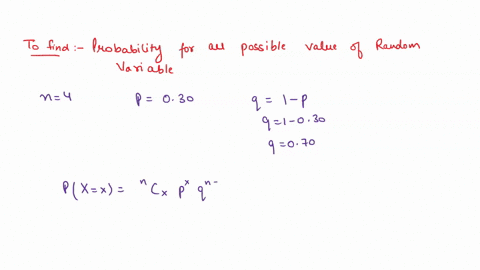 To find :- Probability for all possible value of Random
Variable
n=4 P = 0.30 q = 1-p
q=1-0.30
q=0.70
P(X=x) = ⁿCₓ pˣ qⁿ⁻